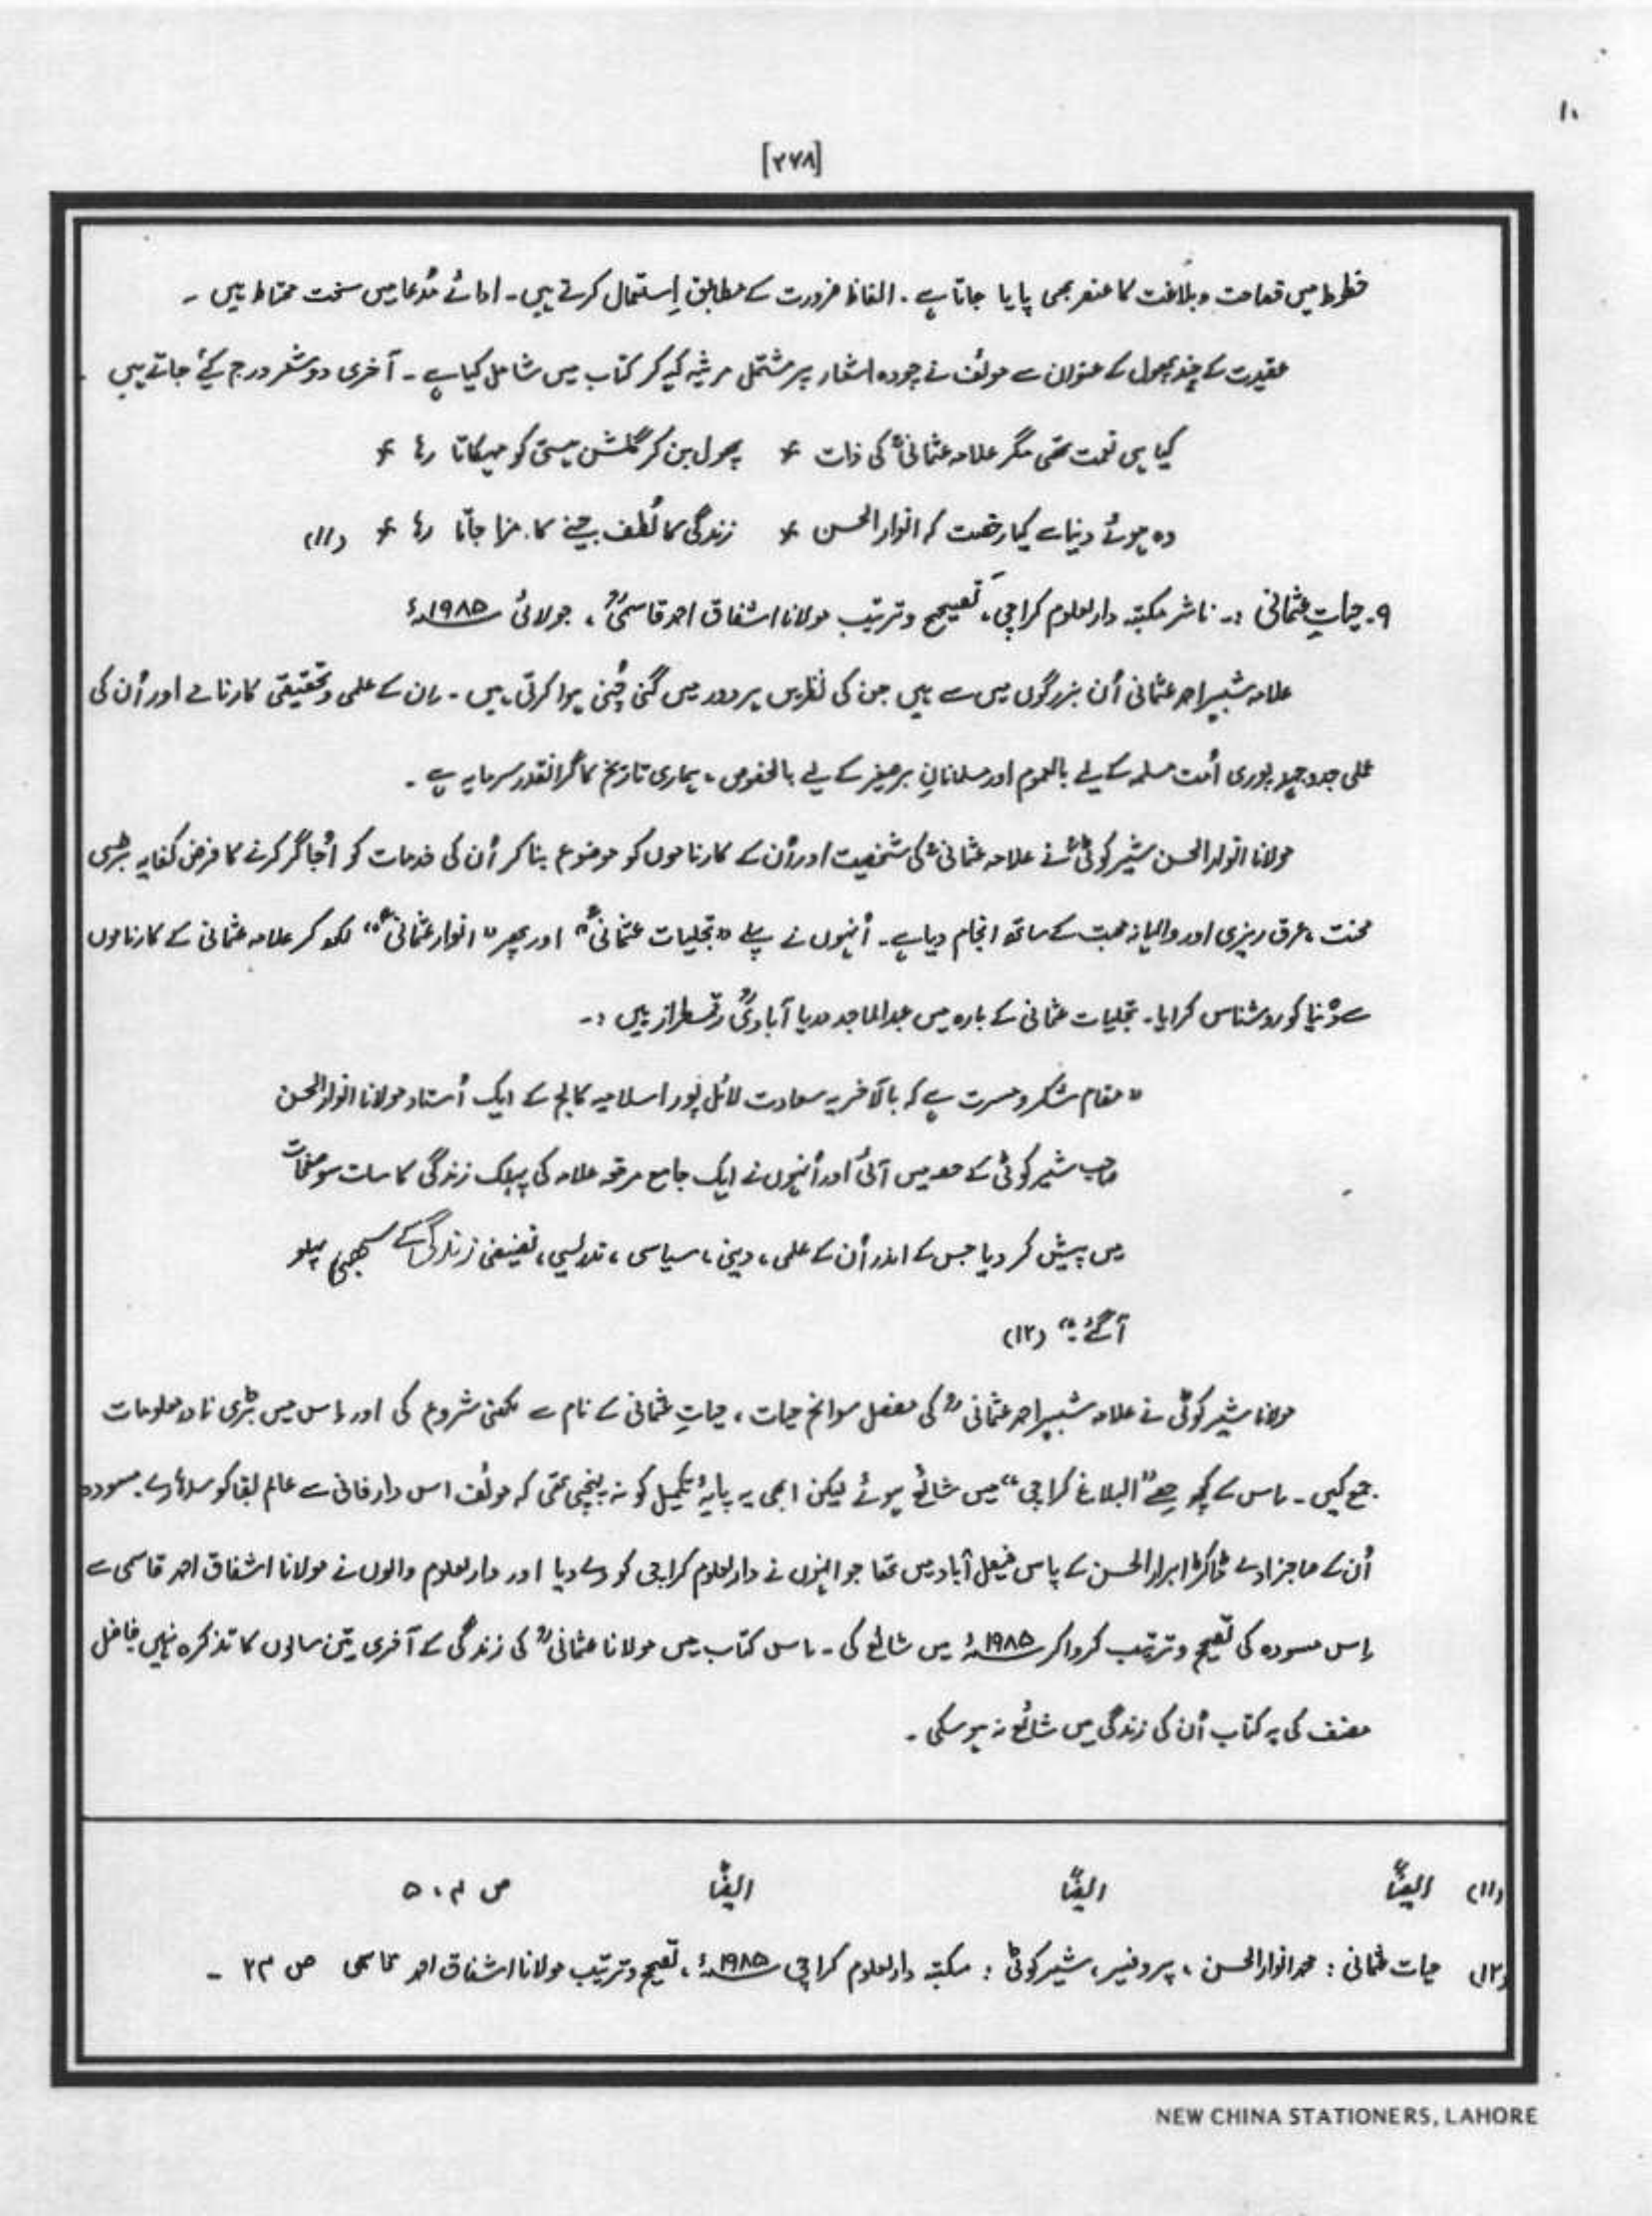 ۱۰
[۲۷۸]
خطوط میں فصاحت و بلاغت کا عنصر بھی پایا جاتا ہے۔ الفاظ ضرورت کے مطابق اِستعمال کرتے ہیں۔ ادائے مُدعا میں سخت محتاط ہیں ۔
عقیدت کے چند پھول کے عنوان سے مولف نے چودہ اشعار پر مشتمل مرثیہ کہہ کر کتاب میں شامل کیا ہے ۔ آخری دو شعر درج کیٔے جاتے ہیں ۔
کیا ہی نعمت تھی مگر علامہ عثمانیؒ کی ذات * پھول بن کر گلشن ہستی کو مہکاتا رہا *
وہ ہوئے دنیا سے کیا رخصت کہ انوار الحسن * زندگی کا لُطف جینے کا مزا جاتا رہا * (۱۱)
۹۔ حیاتِ عثمانی :۔ ناشر مکتبہ دارلعلوم کراچی، تصحیح و ترتیب مولانا اشفاق احمد قاسمیؒ ، جولائی ۱۹۸۵ء
علامہ شبیر احمد عثمانی اُن بزرگوں میں سے ہیں جن کی نظریں ہر دور میں گنی چُنی ہوا کرتی ہیں ۔ اِن کے علمی و تحقیقی کارنامے اور اُن کی
عملی جدوجہد پوری اُمت مسلمہ کے لیے بالعموم اور مسلمانانِ برصغیر کے لیے بالخصوص ، ہماری تاریخ کا گرانقدر سرمایہ ہے ۔
مولانا انوار الحسن شیر کوٹیؒ نے علامہ عثمانیؒ کی شخصیت اور اُن کے کارناموں کو موضوع بنا کر اُن کی خدمات کو اُجاگر کرنے کا فرض کفایہ بڑی
محنت ، عرق ریزی اور والہانہ محبت کے ساتھ انجام دیا ہے ۔ اُنہوں نے پہلے "تجلیات عثمانیؒ" اور پھر "انوار عثمانیؒ" لکھ کر علامہ عثمانی کے کارناموں
سے دُنیا کو روشناس کرایا۔ تجلیات عثمانی کے بارہ میں عبدالماجد دریا آبادیؒ رقمطراز ہیں :۔
"مقام شکر و مسرت ہے کہ بالآخر یہ سعادت لائل پور اسلامیہ کالج کے ایک اُستاد مولانا انوار الحسن
صاحب شیر کوٹی کے حصہ میں آئی اور اُنہوں نے ایک جامع مرقع علامہ کی پبلک زندگی کا سات سو صفحات
میں پیش کر دیا جس کے اندر اُن کے علمی ، دینی ، سیاسی ، تدریسی ، تصنیفی زندگی کے سبھی پہلو
آگئے ۔" (۱۲)
مولانا شیر کوٹی نے علامہ شبیر احمد عثمانیؒ کی مفصل سوانح حیات ، حیاتِ عثمانی کے نام سے لکھنی شروع کی اور اِس میں بڑی نادر معلومات
جمع کیں ۔ اِس کے کچھ حصے "البلاغ کراچی" میں شائع ہوئے لیکن ابھی یہ پایۂ تکمیل کو نہ پہنچی تھی کہ مولف اس دارفانی سے عالم بقا کو سدھارے۔ مسودہ
اُن کے صاحبزادے ڈاکٹر ابرار الحسن کے پاس فیصل آباد میں تھا جو انہوں نے دارلعلوم کراچی کو دے دیا اور دارلعلوم والوں نے مولانا اشفاق احمد قاسمی سے
اِس مسودہ کی تصحیح و ترتیب کروا کر ۱۹۸۵ء میں شائع کی ۔ اِس کتاب میں مولانا عثمانیؒ کی زندگی کے آخری تین سالوں کا تذکرہ نہیں فاضل
مصنف کی یہ کتاب اُن کی زندگی میں شائع نہ ہو سکی ۔
(۱۱) ایضاً ایضاً ایضاً ص ۵۰۴
(۱۲) حیات عثمانی : محمد انوار الحسن ، پروفیسر، شیر کوٹی : مکتبہ دارلعلوم کراچی ۱۹۸۵ء ، تصحیح و ترتیب مولانا اشفاق احمد قاسمی ص ۲۳ ۔
NEW CHINA STATIONERS, LAHORE